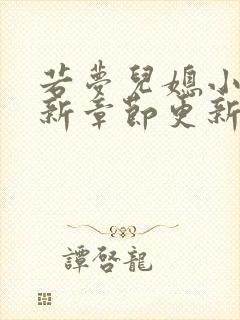 若夢兒媳小
新章節更新
譚啓龍